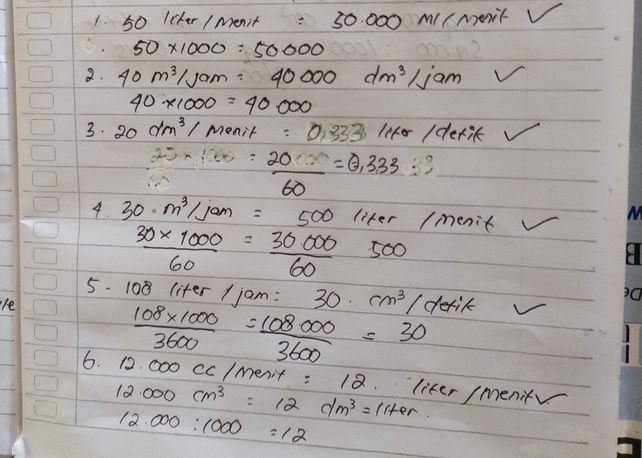 1. 50 liter / Menit = 50.000 ml / Menit ✓
50 x 1000 = 50000
2. 40 m³/jam = 40000 dm³/jam ✓
40 x 1000 = 40.000
3. 20 dm³/ Menit = 0,333 liter /detik ✓
20 = 0,333
60
4. 30 m³/jam = 500 liter /menit ✓
30 x 1000 = 30.000 500
60 60
5. 108 liter / jam = 30. cm³/detik ✓
108 x 1000 = 108000 = 30
3600 3600
6. 12.000 cc / Menit = 12. liter / Menit ✓
12.000 cm³ = 12 dm³ = liter.
12.000 : 1000 = 12